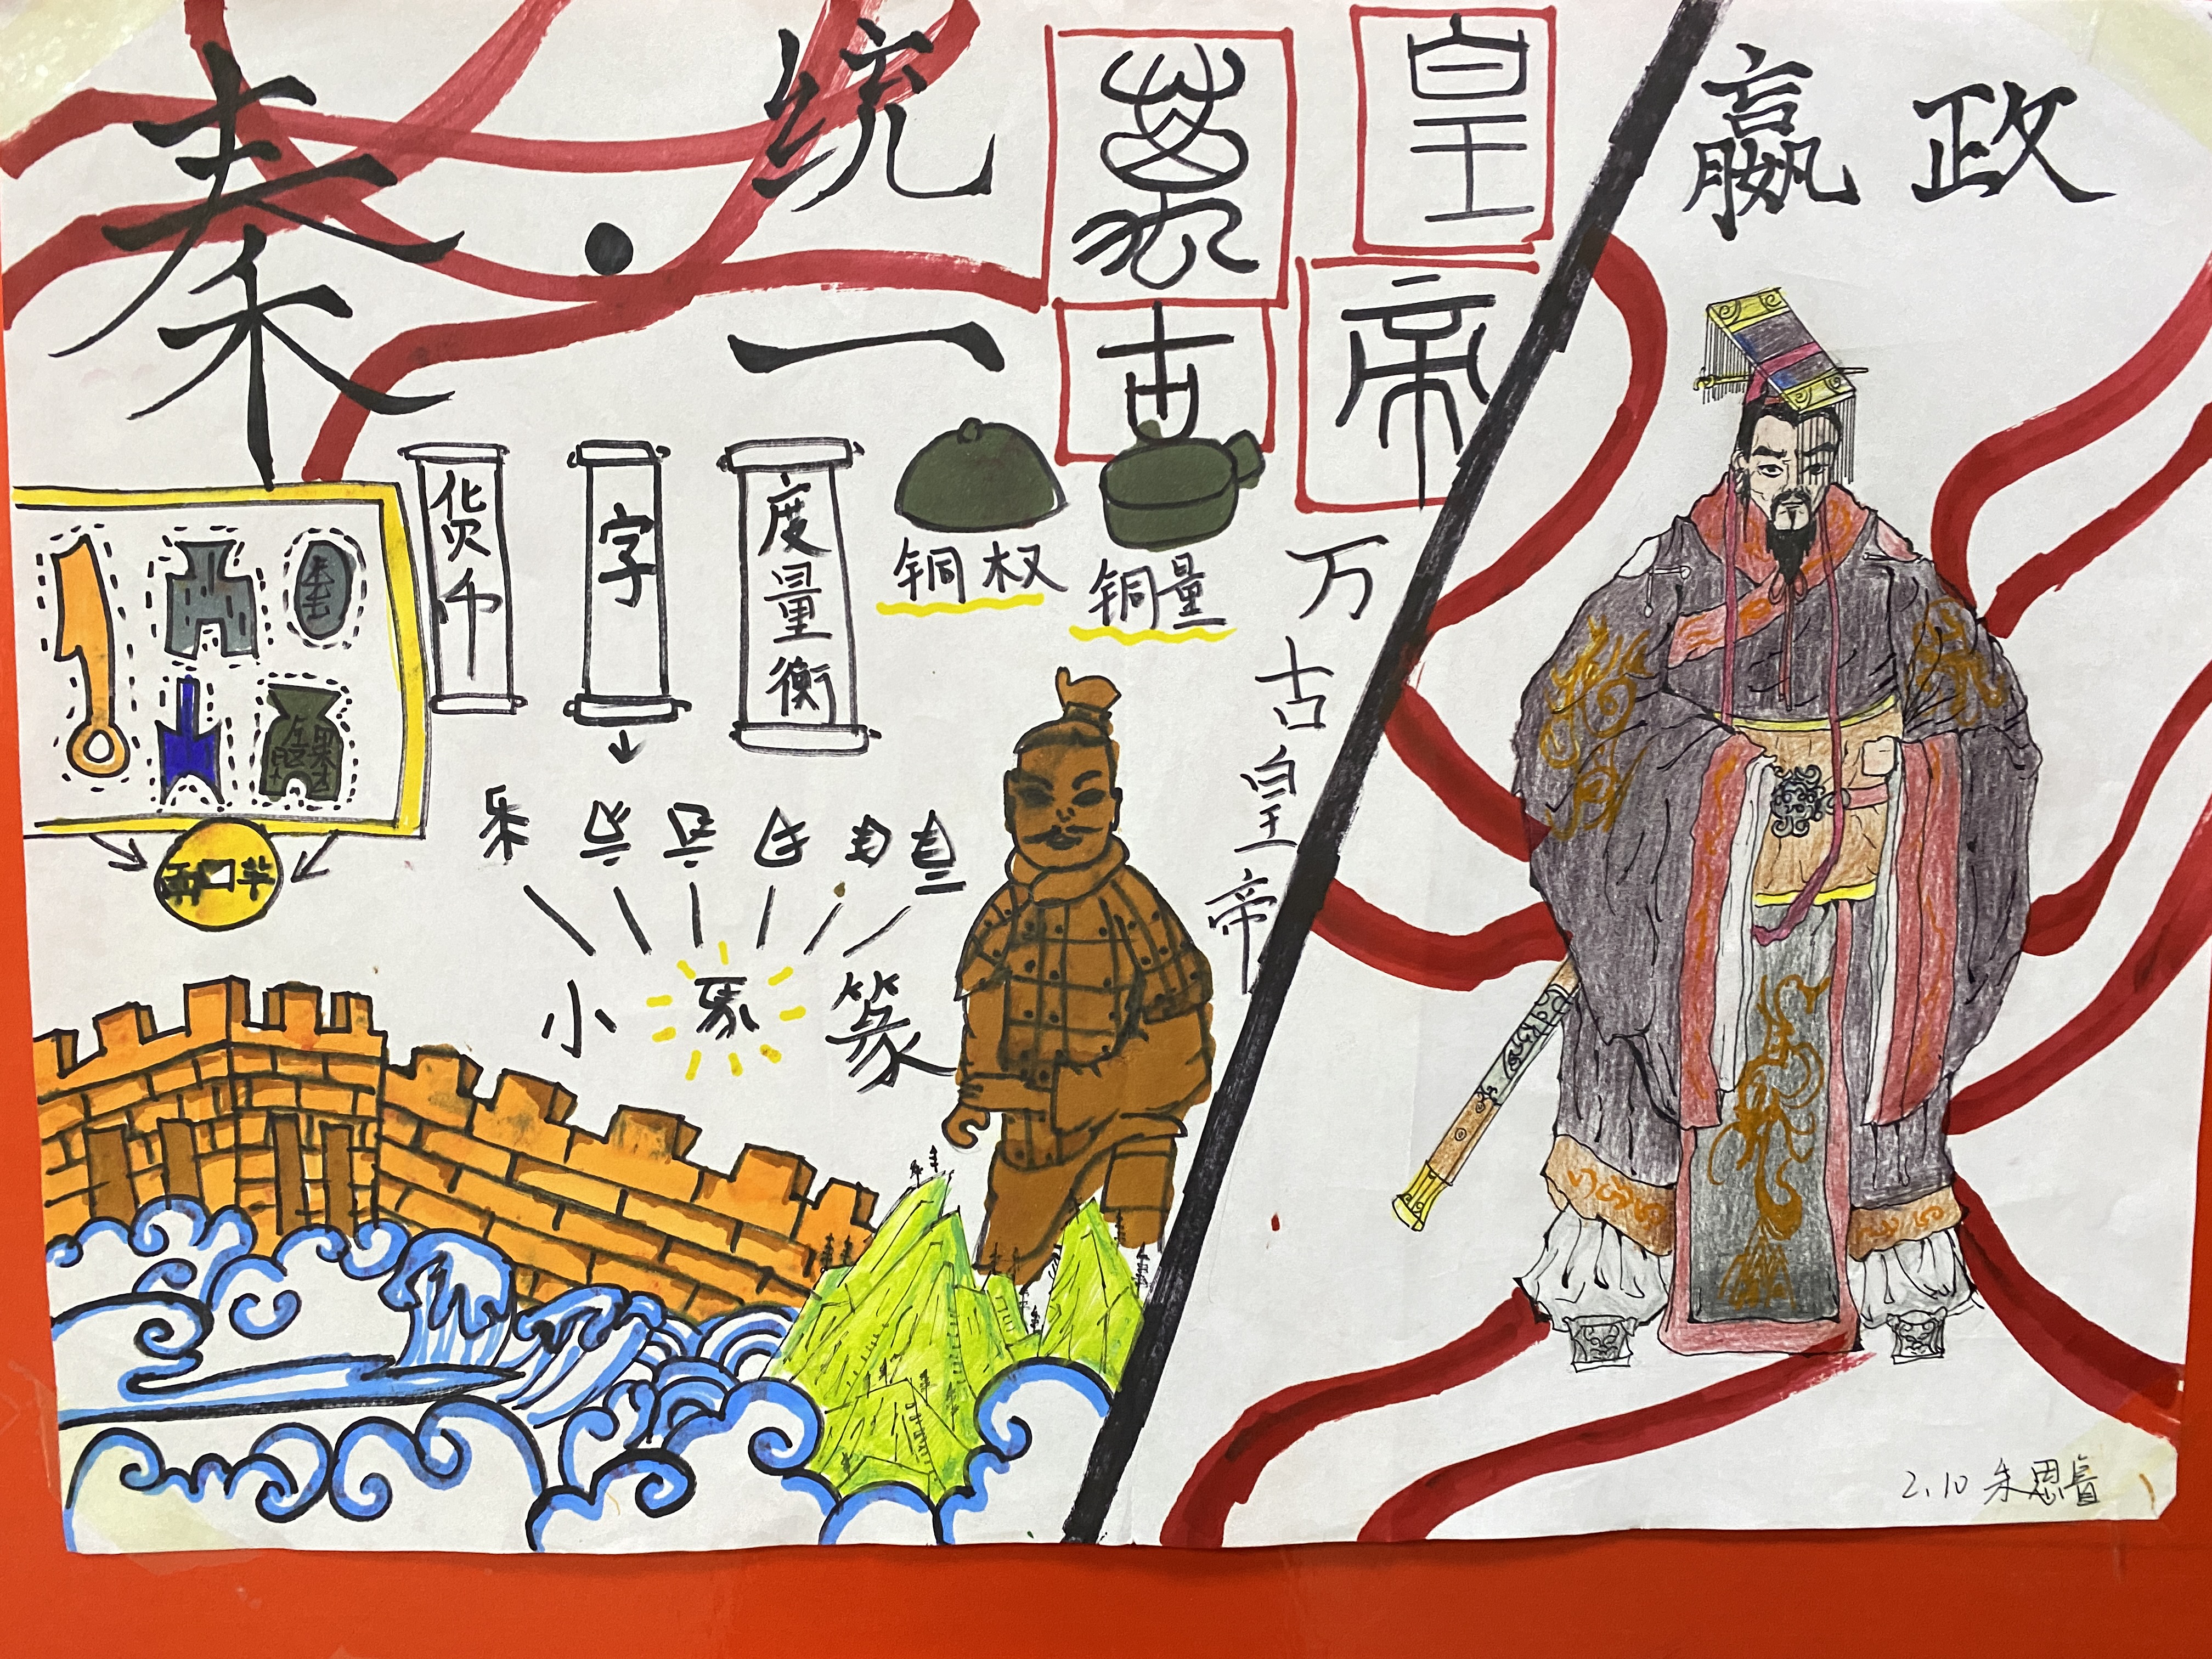 秦·统一
萬古
皇帝
嬴政
货币
字
度量衡
铜权
铜量
万古皇帝
半两
小篆
2.10 朱思睿